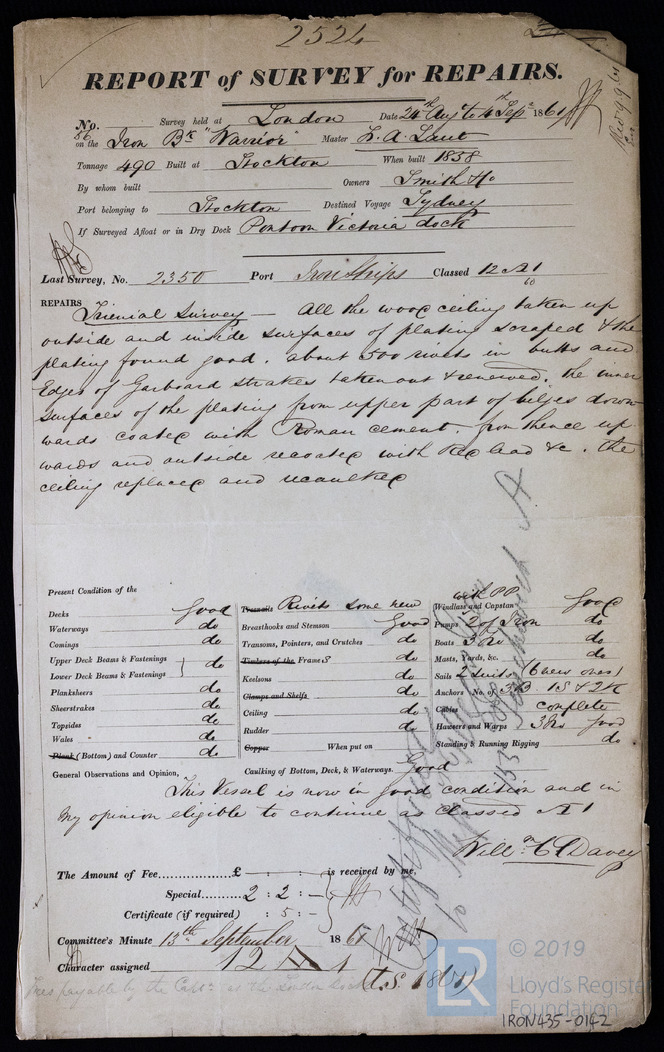 2524
REPORT of SURVEY for REPAIRS.
No. 86 Survey held at London Date 24th Augt to 4th Sepr 1861
on the Iron Bk "Warrior" Master
Tonnage 490 Built at Stockton When built 1858
By whom built Owners Smith & Co
Port belonging to Stockton Destined Voyage Sydney
If Surveyed Afloat or in Dry Dock Pontoon Victoria dock
Last Survey, No. 2350 Port Iron Ships Classed 12 A1
60
REPAIRS Trienial Survey — All the wood ceiling taken up
outside and inside surfaces of plating scraped & the
plating found good. about 500 rivets in butts and
Edges of Garboard strakes taken out & renewed. the inner
surfaces of the plating from upper part of bilges down
wards coated with Roman cement. from thence up
wards and outside recoated with Red lead &c. the
ceiling replaced and recaulked
Present Condition of the
Decks Good
Waterways do
Comings do
Upper Deck Beams & Fastenings
Lower Deck Beams & Fastenings } do
Planksheers do
Sheerstrakes do
Topsides do
Wales do
Plank (Bottom) and Counter do
Treenails Rivets some new
Breasthooks and Stemson Good
Transoms, Pointers, and Crutches do
Timbers of the Frames do
Keelsons do
Clamps and Shelfs
Ceiling do
Rudder do
Copper When put on
Caulking of Bottom, Deck, & Waterways. Good
with PP
Windlass and Capstan Good
Pumps 2 of Iron do
Boats 3 do
Masts, Yards, &c. do
Sails 2 Suits
Anchors No. of 3B 1S & 2K
Cables complete
Hawsers and Warps 3 good
Standing & Running Rigging do
General Observations and Opinion,
This Vessel is now in good condition and in
my opinion eligible to continue as classed A1
Willm C Davey
The Amount of Fee £ — : — : — is received by me,
Special 2 : 2 : —
Certificate (if required) : 5 : —
Committee's Minute 13th September 1861
Character assigned 12 A 1
(T.S. 1861)
Fees payable by the Captn at the London Dock
© 2019
LR
Lloyd's Register
Foundation
IRON435-0142